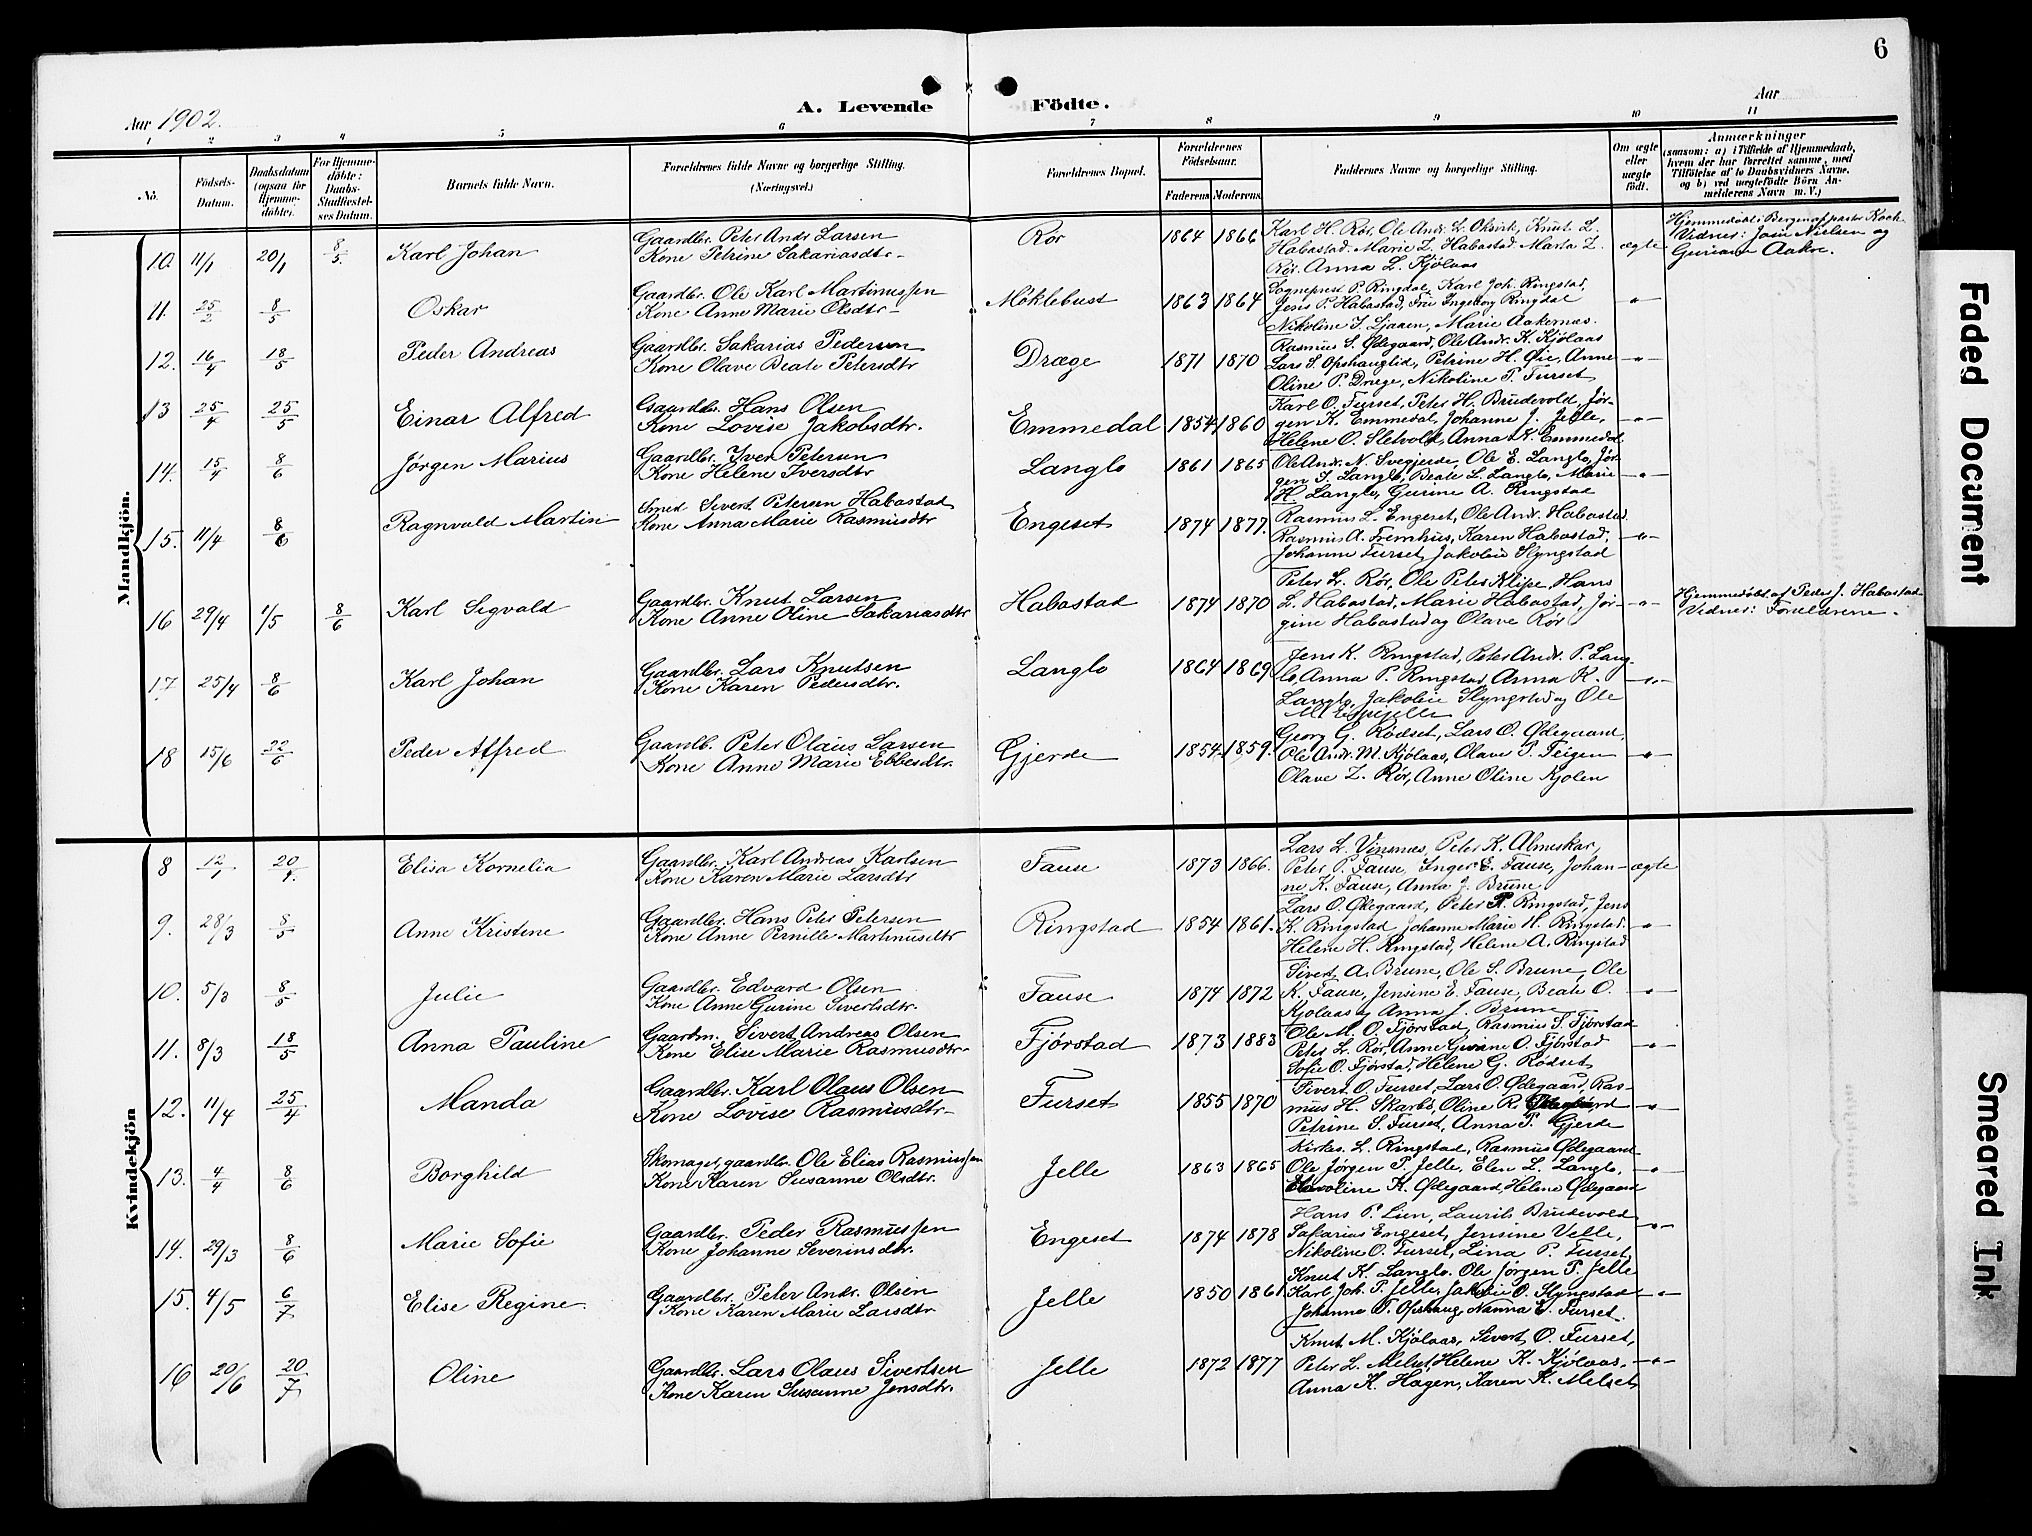 6
Aar 1902.
A. Levende Födte.
Aar
1 2 3 4 5 6 7 8 9 10 11
No.
Födsels-Datum.
Daabsdatum (ogsaa for Hjemmedöbte).
For Hjemmedöbte: Daabs-Stadfæstelses Datum.
Barnets fulde Navn.
Forældrenes fulde Navne og borgerlige Stilling.
(Næringsvei.)
Forældrenes Bopæl.
Forældrenes Födselsaar.
Faderens Moderens
Faddernes Navne og borgerlige Stilling.
Om ægte eller uægte födt.
Anmærkninger
(saasom: a) i Tilfælde af Hjemmedaab,
hvem der har forrettet samme, med
Tilföielse af to Daabsvidners Navne,
og b) ved uægtefödte Börn An-
melderens Navn m. V.)
Mandkjön.
10. 11/1 20/1 8/5. Karl Johan
Gaardbr. Peter Andr Larsen
Kone Petrine Sakariasdtr.
Rör 1864 1866
Karl H. Rör, Ole Andr. L. Oksvik, Knut L.
Habostad, Marie L. Habostad Marta L.
Rör. Anna L. Kjölaas
ægte
Hjemmedöbt i Bergen af pastor Koch
Vidner: Josie Nielsen og
Guriane Aakre.
11. 25/2 8/5 Oskar
Gaardbr. Ole Karl Martinussen
Kone Anne Marie Olsdtr
Möklebust 1863 1864
Sogneprest P. Ringdal, Karl Joh. Ringstad,
Jens P. Habostad, Fru Ingeborg Ringdal
Nikoline I. Ljaaen, Marie Aakernes.
-"-
12. 16/4 18/5 Peder Andreas
Gaardbr. Sakarias Pedersen
Kone Olave Beate Petersdtr
Dræge 1871 1870
Rasmus S. Ödegaard, Ole Andr. K. Kjölaas
Lars S. Opshauglid, Petrine H. Öie, Anne
Oline P. Dræge, Nikoline P. Furset
-"-
13 25/4 25/5 Einar Alfred
Gaardbr. Hans Olsen
Kone Lovise Jakobsdtr.
Emmedal 1854 1860
Karl O. Furset, Peter H. Brudevold, Jör-
gen K. Emmedal, Johanne J. Jelle,
Helene O. Sletvold, Anna K. Emmedal
-"-
14. 15/4 8/6 Jörgen Marius
Gaardbr. Iver Petersen
Kone Helene Iversdtr
Langlo 1861 1865
Ole Andr. N. Svegjerde, Ole E. Langlo, Jör-
gen I. Langlo, Beate L. Langlo, Marie
H. Langlo, Gurine A. Ringstad
-"-
15. 11/4 8/6 Ragnvald Martin
Smed Sivert Petersen Habostad
Kone Anna Marie Rasmusdtr
Engeset 1874 1877.
Rasmus L. Engeset, Ole Andr. Habostad
Rasmus A. Fremhus, Karen Habostad,
Johanne Furset, Jakobie Slyngstad
-"-
16 29/4 1/5 8/6 Karl Sigvald
Gaardbr. Knut Larsen
Kone Anne Oline Sakariasdtr
Habostad 1874 1870
Peter L. Rör, Ole Peter Klipe, Hans
L. Habostad, Marie Habostad, Jör-
gine Habostad og Olave Rör
-"-
Hjemmedöbt af Peder J. Habostad
Vidner: Forældrene.
17 25/4 8/6 Karl Johan
Gaardbr. Lars Knutsen
Kone Karen Pedersdtr.
Langlo 1864 1869
Jens K. Ringstad, Peter Andr. P. Lang-
lo, Anna P. Ringstad, Anna K.
Langlo, Jakobie Slyngstad og Ole
-"-
18 15/6 22/6 Peder Alfred
Gaardb. Peter Olaus Larsen
Kone Anne Marie Ebbesdtr.
Gjerde 1854 1859.
Georg G. Rödset, Lars O. Ödegaard,
Ole Andr. M. Kjölaas, Olave P. Teigen
Olave L. Rör, Anne Oline Kjölen
-"-
Kvindekjön
8 12/1 20/4. Elisa Kornelia
Gaardbr. Karl Andreas Karlsen
Kone Karen Marie Larsdtr
Fause 1873 1866.
Lars L. Vinsnes, Peter K. Almeskar,
Peter P. Fause, Inger E. Fause, Johan-
ne K. Fause, Anna J. Brune
ægte
9. 28/3 8/5 Anne Kristine
Gaardbr. Hans Peter Petersen
Kone Anne Pernille Martinusdtr
Ringstad 1854 1861.
Lars O. Ödegaard, Peter R. Ringstad, Jens
K. Ringstad Johanne Marie H. Ringstad
Helene H. Ringstad, Helene A. Ringstad
-"-
10. 5/3 8/5 Julie
Gaardbr. Edvard Olsen
Kone Anne Gurine Sivertsdtr.
Fause 1874 1872
Sivert A. Brune, Ole S. Brune, Ole
K. Fause, Jensine E. Fause, Beate O.
Kjölaas, Anna J. Brune
-"-
11. 8/3 18/5 Anna Pauline
Gaardm. Sivert Andreas Olsen
Kone Elise Marie Rasmusdtr
Fjörstad 1873 1883
Ole M. O. Fjörstad, Rasmus S. Fjörstad
Peter L. Rör, Anne Gurine O. Fjörstad
Sofie O. Fjörstad, Helene G. Rödset
-"-
12. 11/4 25/4 Manda
Gaardbr. Karl Olaus Olsen
Kone Lovise Rasmusdtr
Furset 1855 1870
Sivert O. Furset, Lars O. Ödegaard, Ras-
mus H. Skarbö, Oline R. Ödegaard
Petrine S. Furset, Anna P. Gjerde
-"-
13. 4/4 8/6 Borghild
Skomager, gaardbr. Ole Elias Rasmussen
Kone Karen Susanne Olsdtr.
Jelle 1863 1865
Kirkes. L. Ringstad, Rasmus Ödegaard
Ole Jörgen P. Jelle, Elen L. Langlo,
Karoline K. Ödegaard, Helene Ödegaard
-"-
14. 29/3 8/6 Marie Sofie
Gaardbr. Peder Rasmussen
Kone Johanne Severinsdtr.
Engeset 1874 1878
Hans P. Lien, Laurits Brudevold
Sakarias Engeset, Jensine Velle,
Nikoline O. Furset, Lina P. Furset,
-"-
15. 4/5 6/7 Elise Regine
Gaardbr. Peter Andr. Olsen
Kone Karen Marie Larsdtr
Jelle 1850 1861
Knut K. Langlo, Ole Jörgen P. Jelle
Karl Joh. P. Jelle, Jakobie O. Slyngstad
Johanne T. Opshaug, Nanna E. Furset.
-"-
16 20/6 20/7 Oline
Gaardbr. Lars Olaus Sivertsen
Kone Karen Susanne Jensdtr.
Jelle 1872 1877
Knut M. Kjölaas, Sivert O. Furset,
Peter L. Melset, Helene K. Kjölaas,
Anna K. Hagen, Karen K. Melset
-"-
Faded Document
Smeared Ink